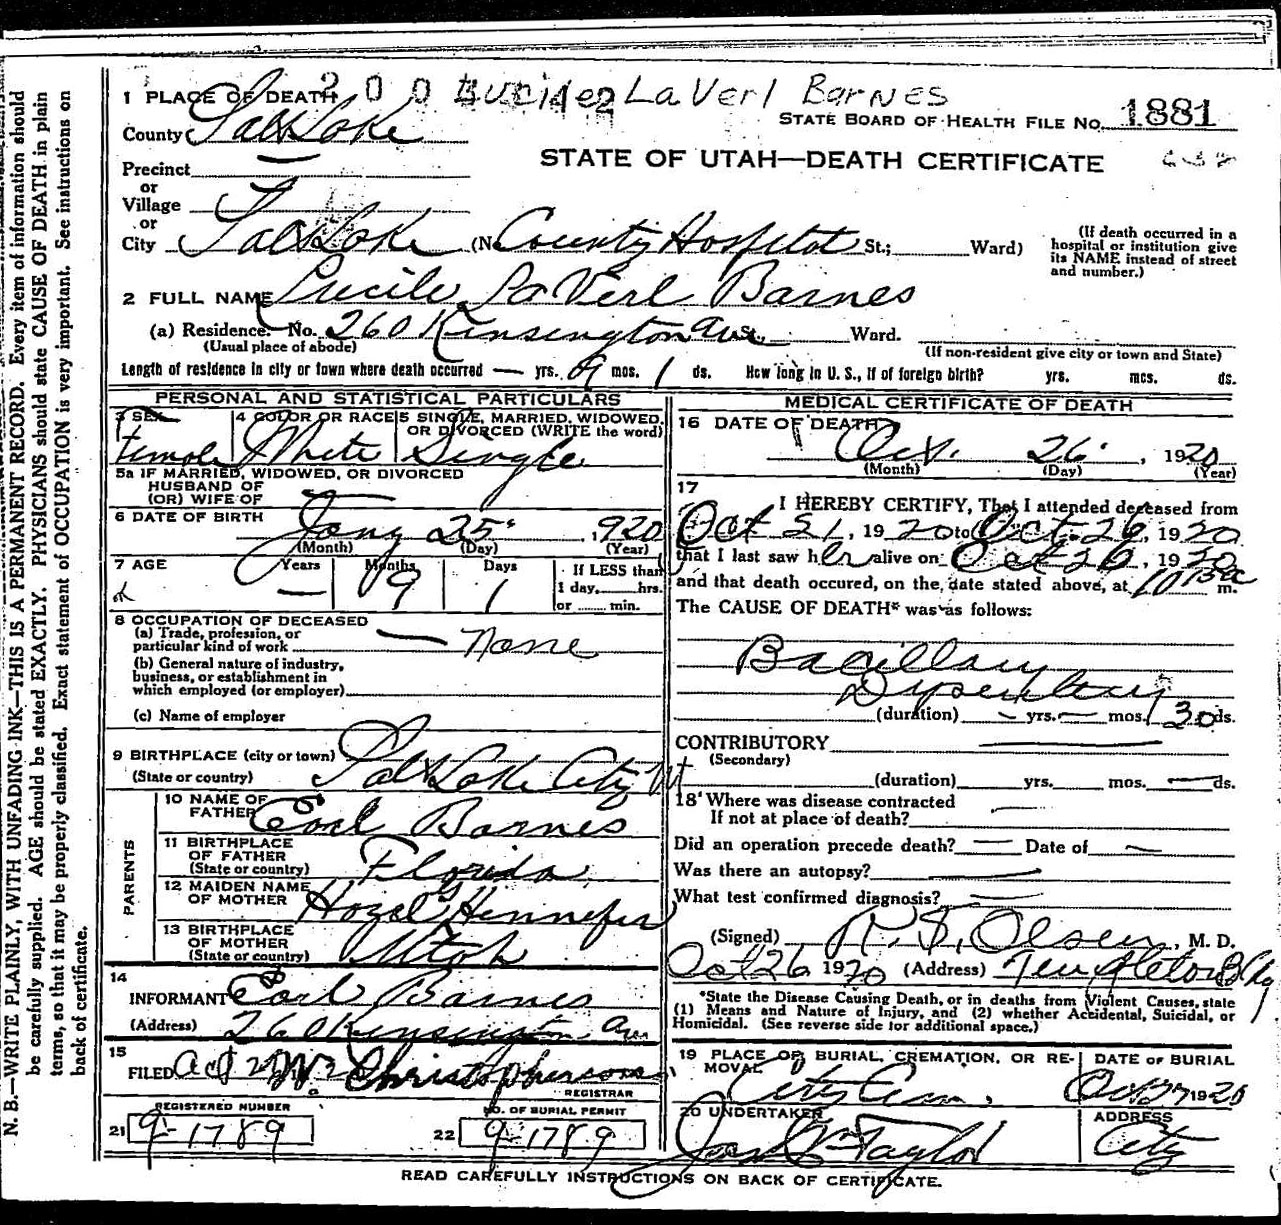 1 PLACE OF DEATH 2 0 0 LaVerl Barnes
County Salt Lake STATE BOARD OF HEALTH FILE No. 1881
STATE OF UTAH—DEATH CERTIFICATE
Precinct —
or
Village
or
City Salt Lake (No. County Hospital St.; Ward) (If death occurred in a hospital or institution give its NAME instead of street and number.)
2 FULL NAME Lucile LaVerl Barnes
(a) Residence. No. 260 Kensington Ave St. Ward.
(Usual place of abode) (If non-resident give city or town and State)
Length of residence in city or town where death occurred — yrs. 9 mos. 1 ds. How long in U. S., if of foreign birth? yrs. mos. ds.
PERSONAL AND STATISTICAL PARTICULARS
3 SEX 4 COLOR OR RACE 5 SINGLE, MARRIED, WIDOWED, OR DIVORCED (WRITE the word)
Female White Single
5a IF MARRIED, WIDOWED, OR DIVORCED
HUSBAND OF
(OR) WIFE OF —
6 DATE OF BIRTH Jany 25 , 1920
(Month) (Day) (Year)
7 AGE Years Months Days If LESS than
— 9 1 1 day, hrs.
or min.
8 OCCUPATION OF DECEASED
(a) Trade, profession, or
particular kind of work — None
(b) General nature of industry,
business, or establishment in
which employed (or employer)
(c) Name of employer
9 BIRTHPLACE (city or town)
(State or country) Salt Lake City Ut
PARENTS
10 NAME OF
FATHER Earl Barnes
11 BIRTHPLACE
OF FATHER
(State or country) Florida
12 MAIDEN NAME
OF MOTHER Hazel Hennefer
13 BIRTHPLACE
OF MOTHER
(State or country) Utah
14
INFORMANT Earl Barnes
(Address) 260 Kensington Ave
15
FILED Oct
REGISTRAR
REGISTERED NUMBER NO. OF BURIAL PERMIT
21 9-1789 22 9-1789
MEDICAL CERTIFICATE OF DEATH
16 DATE OF DEATH
Oct. 26 , 1920
(Month) (Day) (Year)
17
I HEREBY CERTIFY, That I attended deceased from
Oct 21, 1920 to Oct. 26, 1920
that I last saw her alive on Oct 26, 1920
and that death occured, on the date stated above, at m.
The CAUSE OF DEATH* was as follows:
Bacillary
Dysentery
(duration) — yrs. — mos. ds.
CONTRIBUTORY —
(Secondary)
(duration) yrs. mos. — ds.
18 Where was disease contracted
If not at place of death? —
Did an operation precede death? — Date of —
Was there an autopsy? —
What test confirmed diagnosis? —
(Signed) R. S. Olsen, M. D.
Oct 26 1920 (Address) Templeton Bldg
*State the Disease Causing Death, or in deaths from Violent Causes, state
(1) Means and Nature of Injury, and (2) whether Accidental, Suicidal, or
Homicidal. (See reverse side for additional space.)
19 PLACE OF BURIAL, CREMATION, OR RE- DATE OF BURIAL
MOVAL City Cem. Oct 27 1920
20 UNDERTAKER ADDRESS
Taylor City
READ CAREFULLY INSTRUCTIONS ON BACK OF CERTIFICATE.
N. B.—WRITE PLAINLY, WITH UNFADING INK—THIS IS A PERMANENT RECORD. Every item of information should
be carefully supplied. AGE should be stated EXACTLY. PHYSICIANS should state CAUSE OF DEATH in plain
terms, so that it may be properly classified. Exact statement of OCCUPATION is very important. See instructions on
back of certificate.